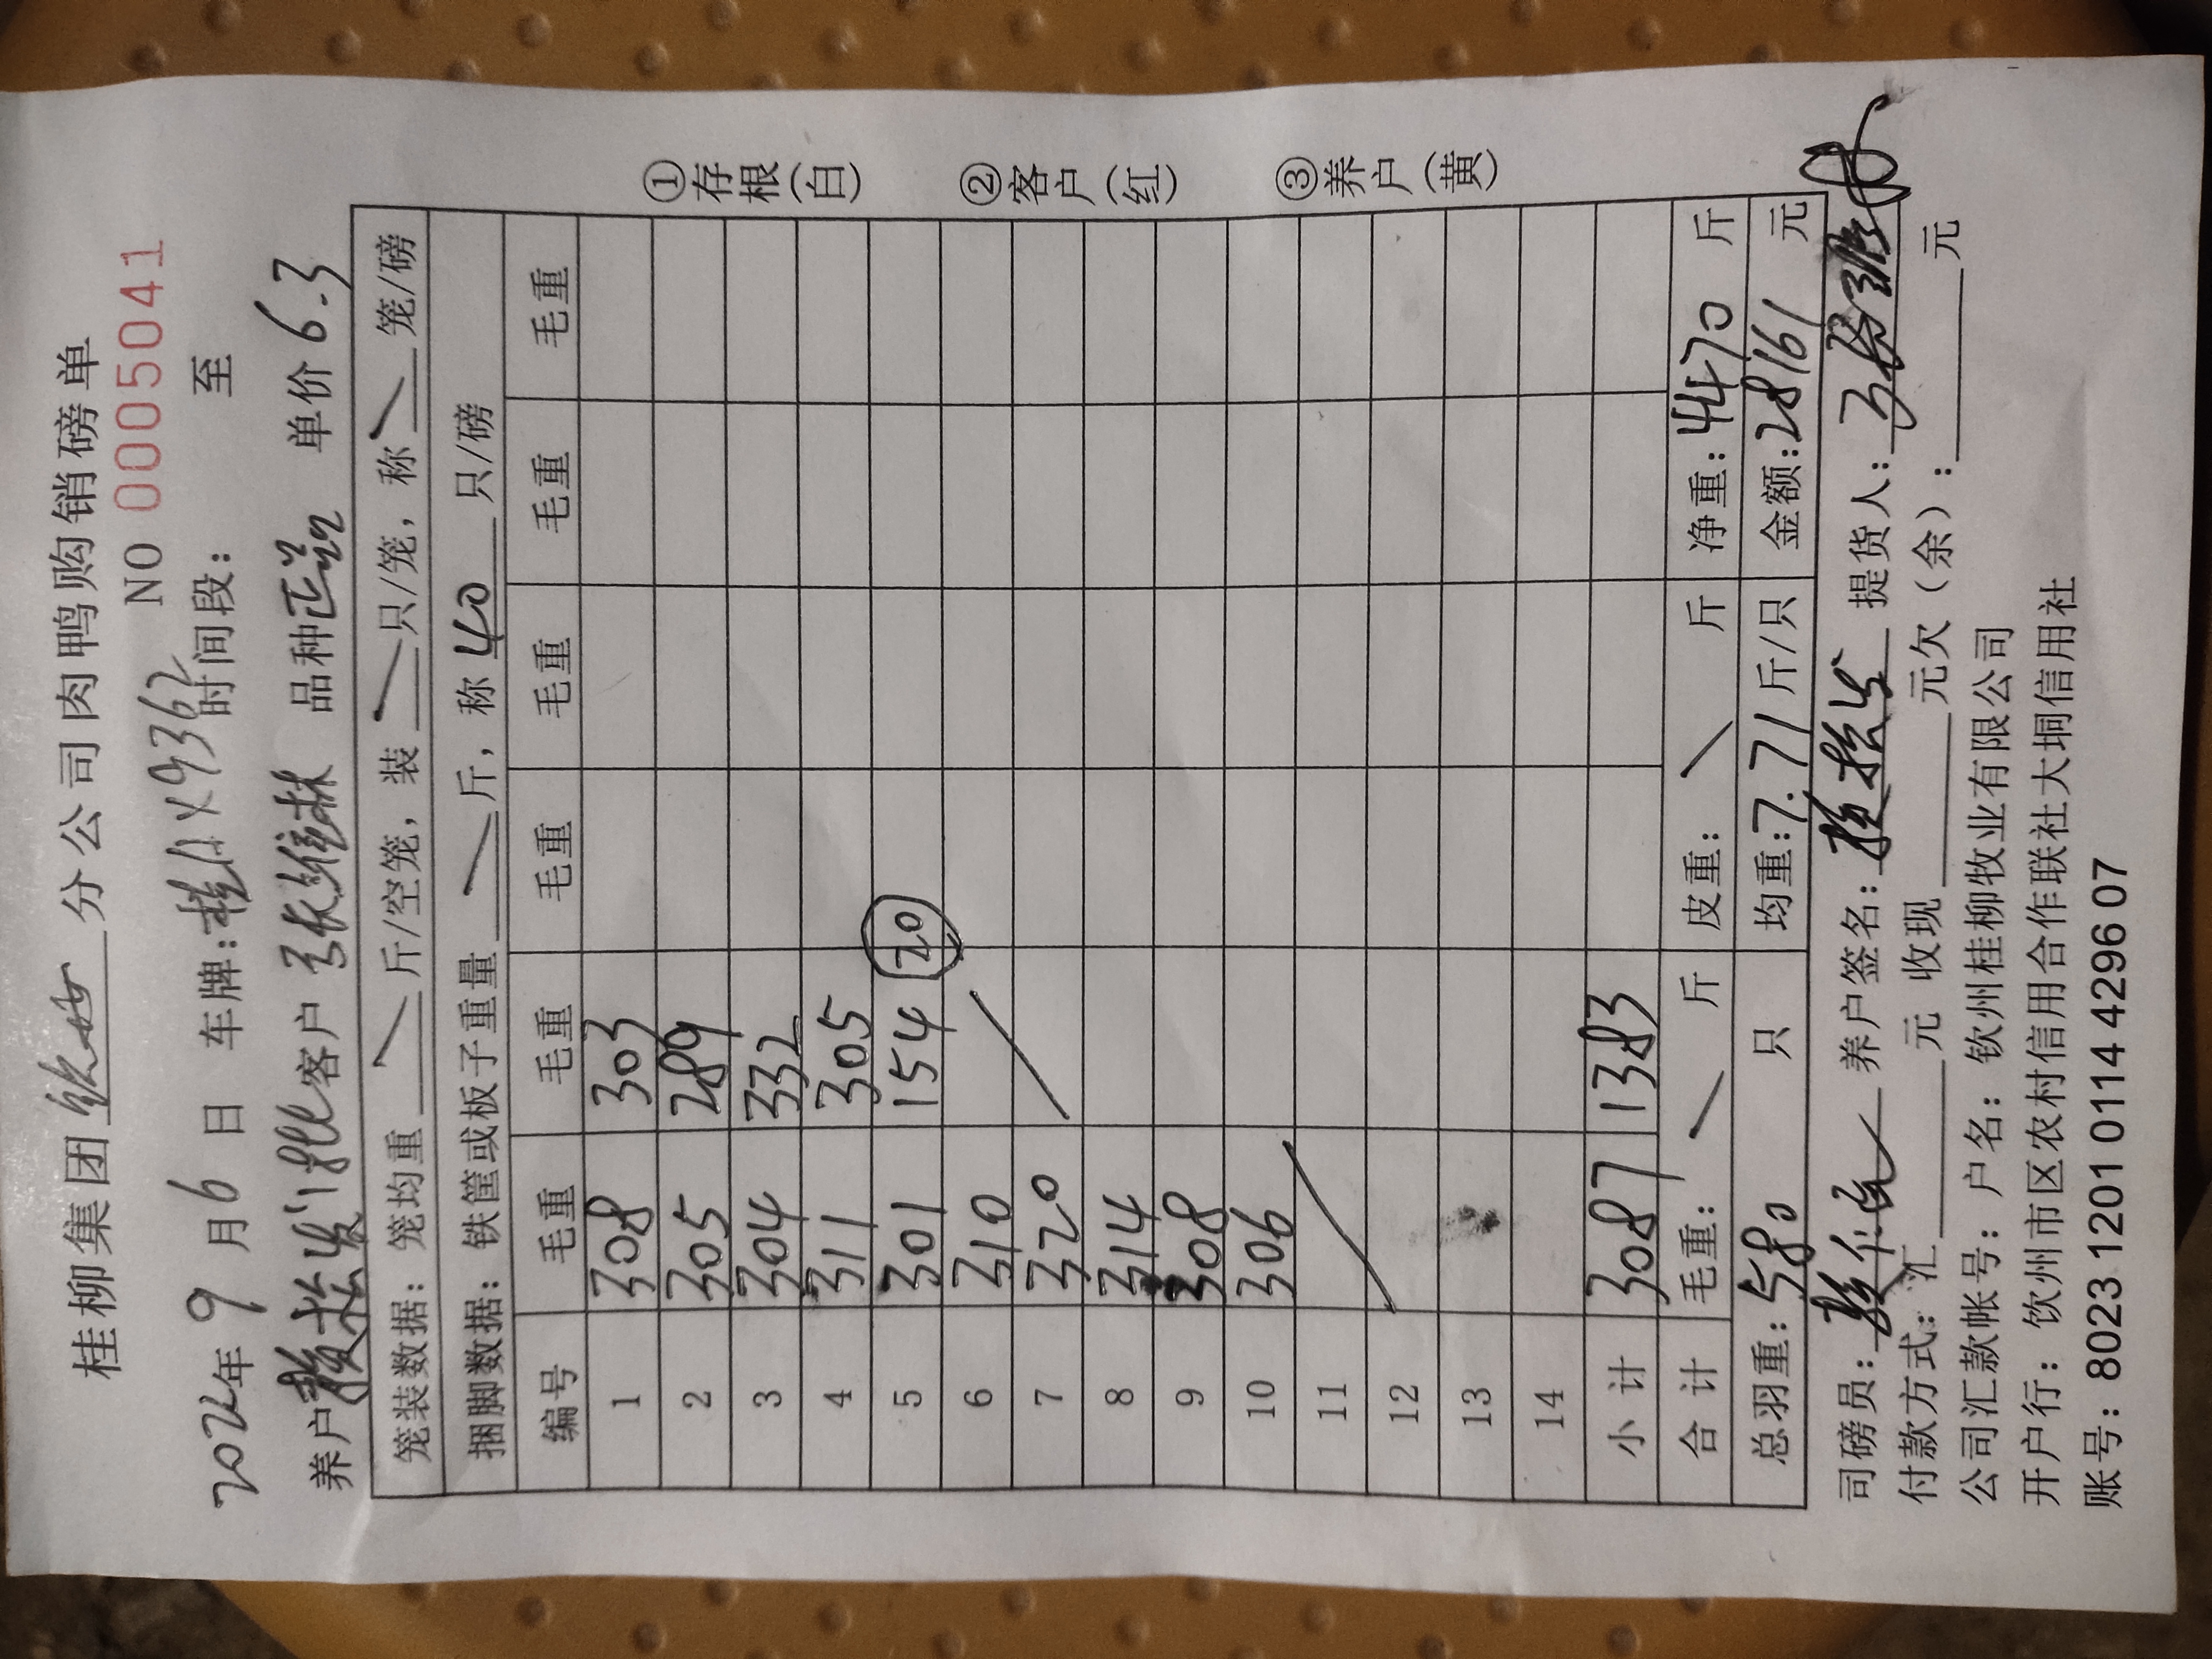 桂柳集团 钦州 分公司肉鸭购销磅单
NO 0005041
2024年 9 月 6 日 车牌：桂AX9362 时间段： 至
养户 客户 张维林 品种 正品 单价 6.3
笼装数据：笼均重 / 斤/空笼，装 / 只/笼，称 / 笼/磅
捆脚数据：铁筐或板子重量 / 斤，称 40 只/磅
编号 毛重 毛重 毛重 毛重 毛重 毛重
1 308 303
2 305 289
3 304 332
4 311 305
5 301 154 20
6 310
7 320
8 314
9 308
10 306
11
12
13
14
小计 3087 1383
合计 毛重： / 斤 皮重： / 斤 净重：4470 斤
总羽重：580 只 均重：7.71 斤/只 金额：28161 元
司磅员： 养户签名： 提货人：
付款方式：汇 元 收现 元欠（余）： 元
公司汇款帐号：户名：钦州桂柳牧业有限公司
开户行：饮州市区农村信用合作联社大垌信用社
账号：8023 1201 0114 4296 07
①存根(白) ②客户(红) ③养户(黄)